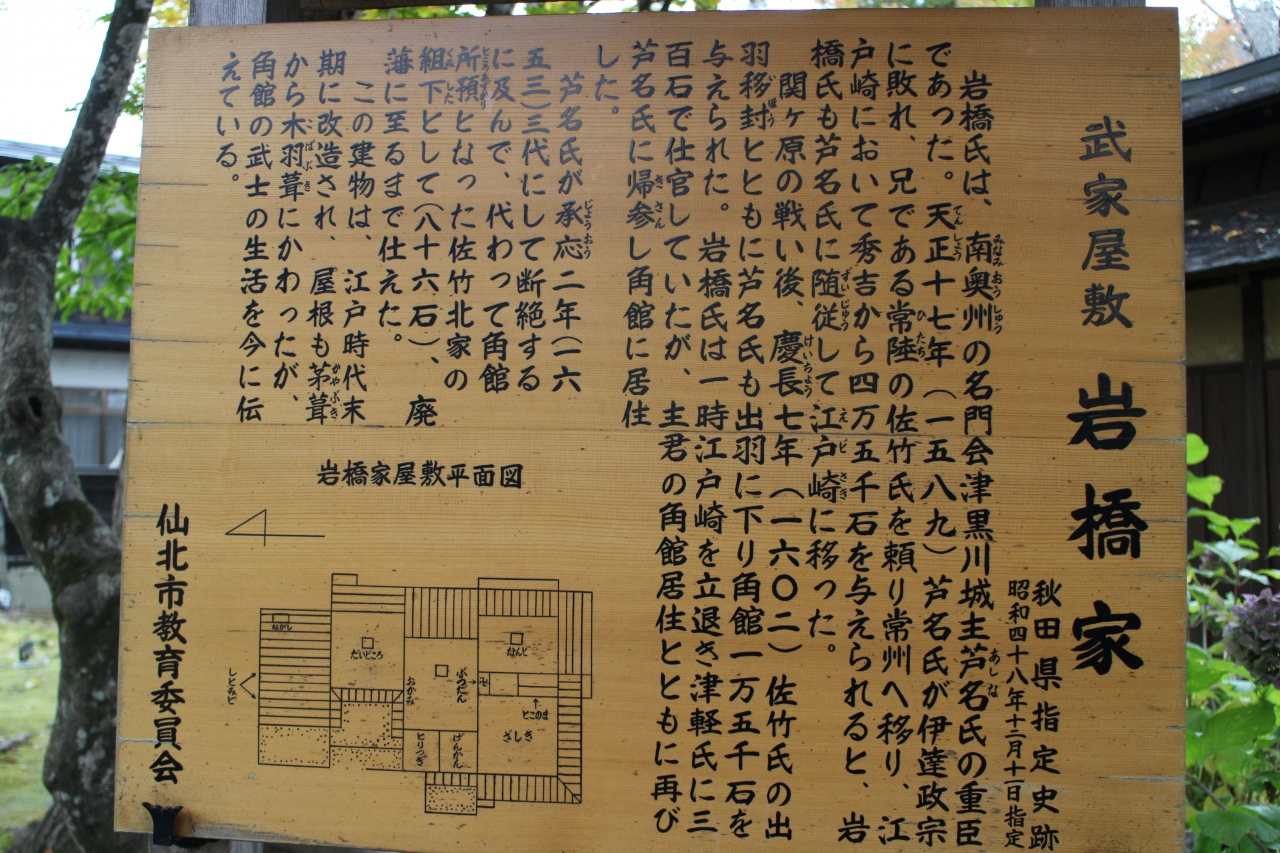 武家屋敷 岩橋家
秋田県指定史跡
昭和四十八年十二月十一日指定
岩橋氏は、南奥州の名門会津黒川城主芦名氏の重臣
であった。天正十七年(一五八九)芦名氏が伊達政宗
に敗れ、兄である常陸の佐竹氏を頼り常州へ移り、江
戸崎において秀吉から四万五千石を与えられると、岩
橋氏も芦名氏に随従して江戸崎に移った。
関ヶ原の戦い後、慶長七年(一六〇二)佐竹氏の出
羽移封とともに芦名氏も出羽に下り角館一万五千石を
与えられた。岩橋氏は一時江戸崎を立退き津軽氏に三
百石で仕官していたが、主君の角館居住とともに再び
芦名氏に帰参し角館に居住
した。
芦名氏が承応二年(一六
五三)三代にして断絶する
に及んで、代わって角館
所預となった佐竹北家の
組下として(八十六石)、廃
藩に至るまで仕えた。
この建物は、江戸時代末
期に改造され、屋根も茅葺
から木羽葺にかわったが、
角館の武士の生活を今に伝
えている。
岩橋家屋敷平面図
ながし
だいどころ
なんど
ぶつだん
おかみ
しとみど
とこのま
ざしき
とりつぎ
げんかん
仙北市教育委員会